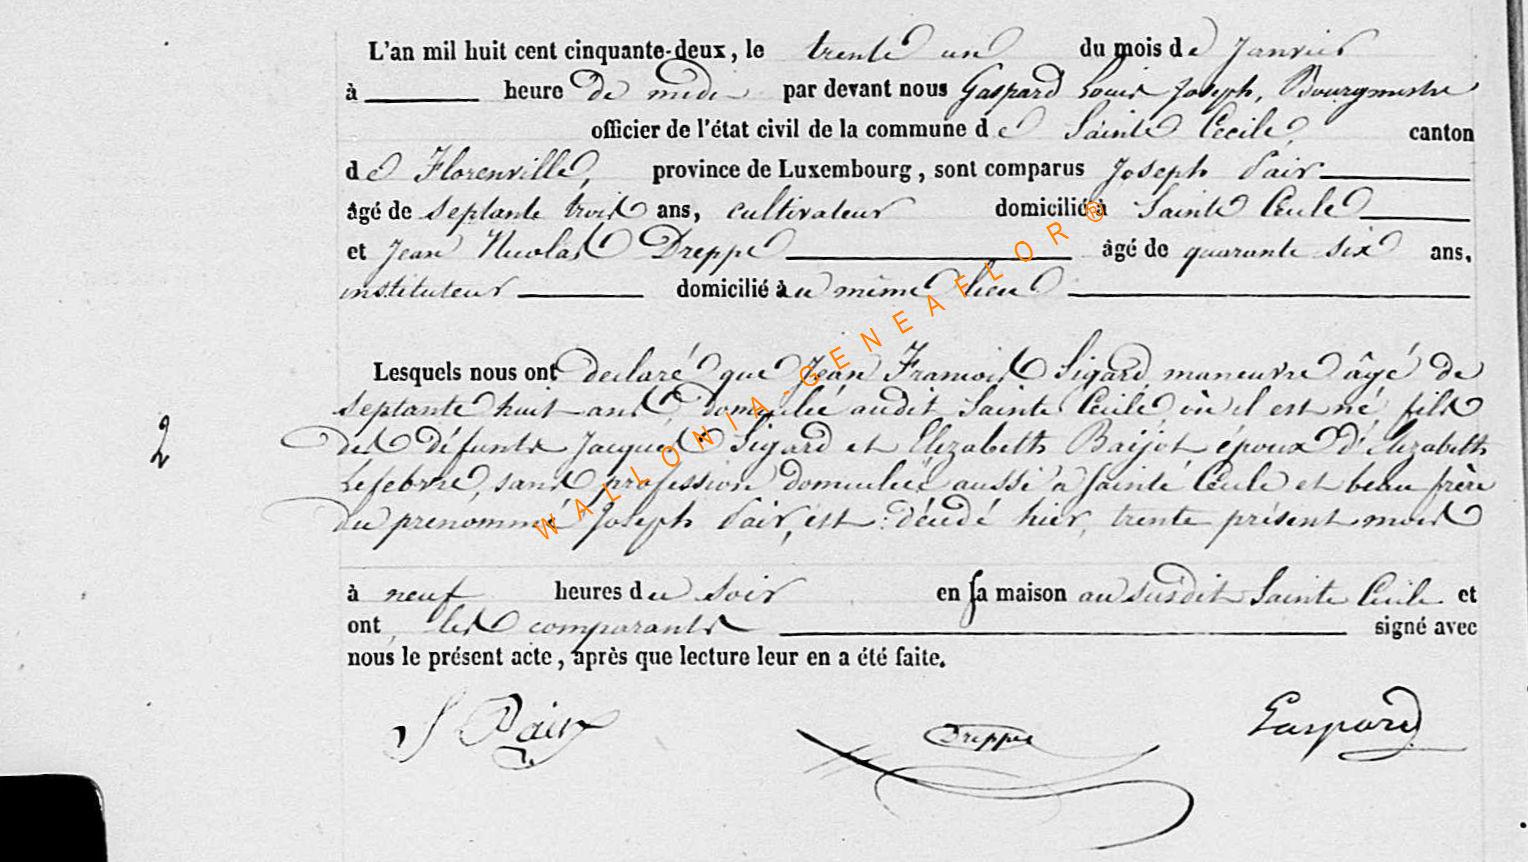 L'an mil huit cent cinquante-deux, le trente un du mois de Janvier
à heure de midi par devant nous Gaspard Louis Joseph, Bourgmestre
officier de l'état civil de la commune de Sainte Cecile canton
de Florenville, province de Luxembourg, sont comparus Joseph Pair
âgé de septante trois ans, cultivateur domicilié à Sainte Cecile
et Jean Nicolas Dreppe âgé de quarante six ans,
instituteur domicilié au même lieu
Lesquels nous ont declaré que Jean Francois Sigard maneuvre âgé de
septante huit ans domicilié audit Sainte Cécile où il est né fils
des défunts Jacques Sigard et Elizabeth Baijot époux d'Elizabeth
Lefebvre, sans profession domiciliée aussi à Sainte Cecile et beau frère
du prenommé Joseph Pair, est décédé hier, trente présent mois
à neuf heures du soir en sa maison au susdit Sainte Cecile et
ont les comparants signé avec
nous le présent acte, après que lecture leur en a été faite.
2
J Pair Dreppe Gaspard
WALLONIA-GENEAFLOR®